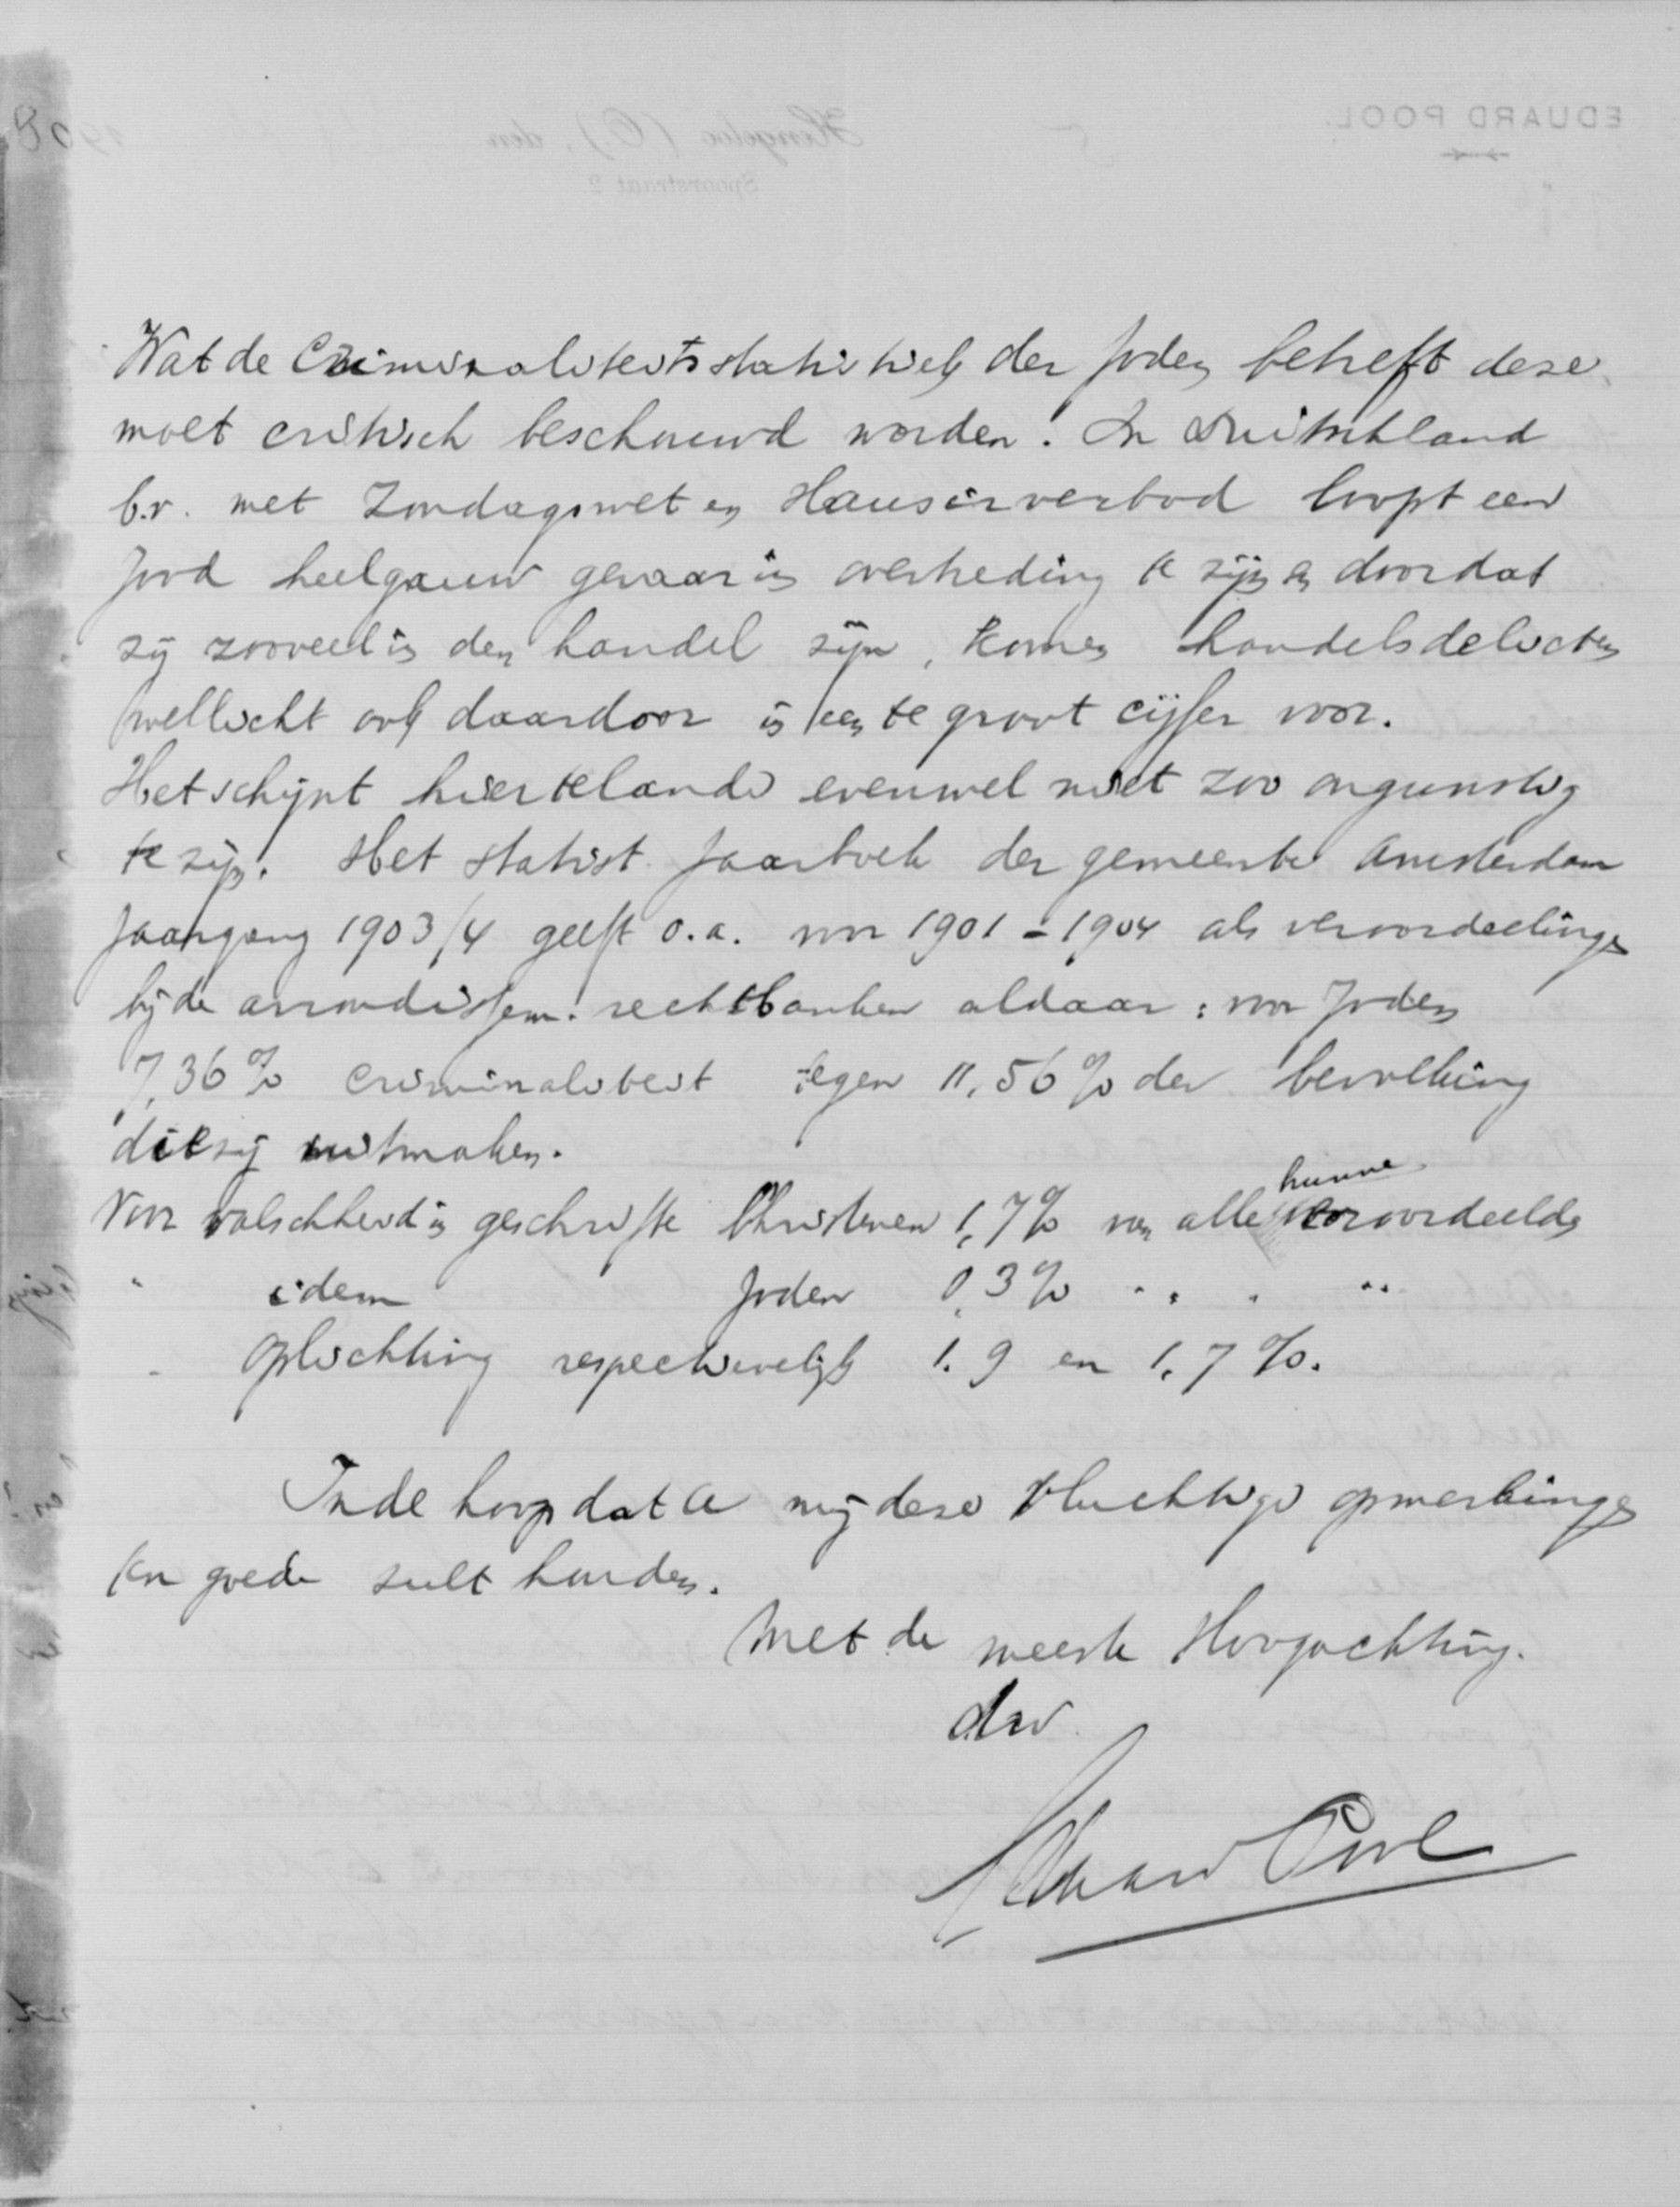 Wat de Criminaliteitsstatistiek der Joden betreft deze
moet critisch beschouwd worden. In Duitschland
b.v. met Zondagswet en Hausirverbod loopt een
Jood heel gauw gevaar in overtreding te zijn en doordat
zij zooveel in den handel zijn, komen handelsdelicten
wellicht ook daardoor in een te groot cijfer voor.
Het schijnt hier te lande evenwel niet zoo ongunstig
te zijn. Het statist. Jaarboek der gemeente Amsterdam
Jaargang 1903/4 geeft o.a. voor 1901-1904 als veroordeelingen
bij de arrondissem. rechtbanken aldaar: voor Joden
7,36% criminaliteit tegen 11,56% der bevolking
die zij uitmaken.
Voor valschheid in geschrifte Christenen 1,7% van alle hunne veroordeelden
" idem Joden 0,3% " " " "
" oplichting respectievelijk 1.9 en 1,7%.
In de hoop dat U mij deze vluchtige opmerkingen
ten goede zult houden.
Met de meeste Hoogachting.
dw
Eduard Pool
EDUARD POOL
Hengelo (O.), den 1908
Spoorstraat 2